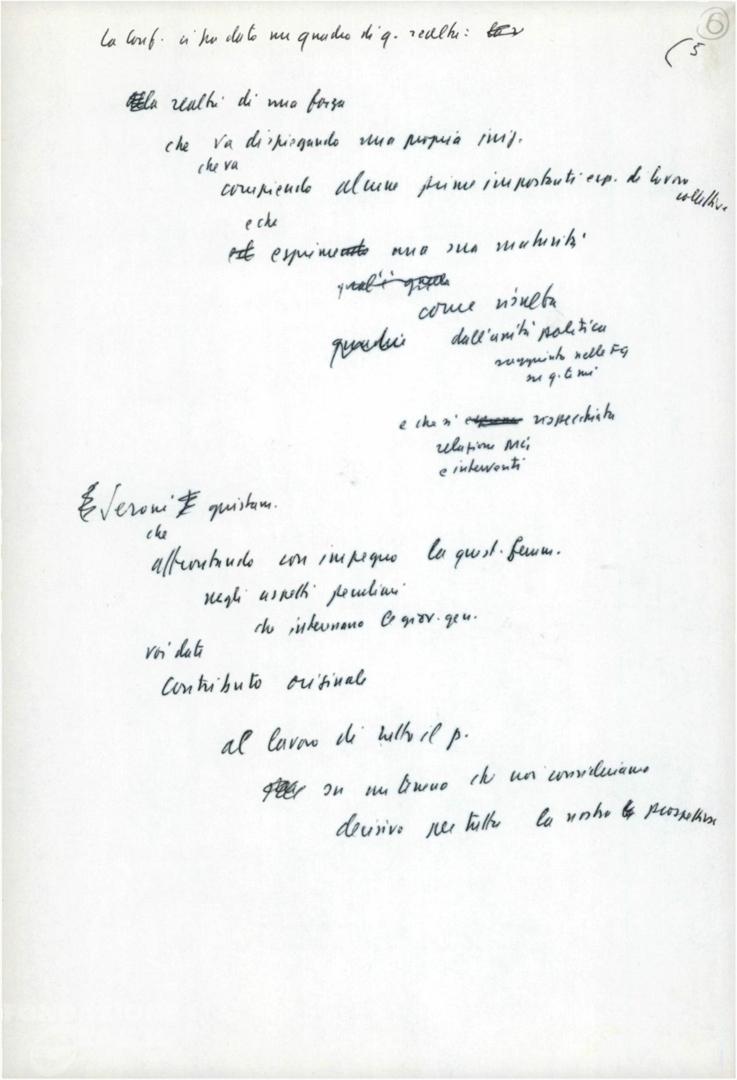 6
( 5
La Conf. ci ha dato un quadro di q. realtà:
la realtà di una forza
che va dispiegando una propria iniz.
che va
compiendo alcune prime importanti esp. di lavoro
collettivo
e che
esprime una sua maturità
come risulta
dall'unità politica
raggiunta nelle FG
su q. temi
e che si rispecchiata
relazione
e interventi
Seroni
che
affrontando con impegno la quest. femm.
negli aspetti peculiari
che interessano le giov. gen.
voi date
contributo originale
al lavoro di tutto il p.
su un terreno che noi consideriamo
decisivo per tutta la nostra prospettiva